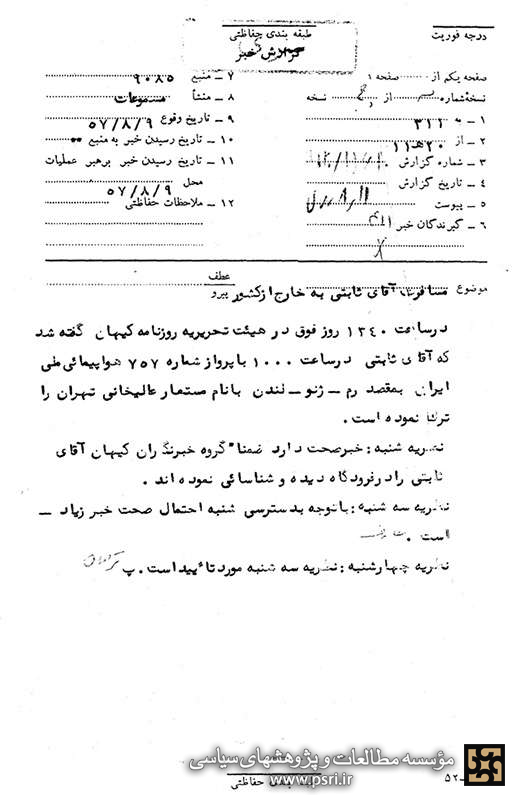 درجه فوریت
طبقه بندی حفاظتی
گزارش خبر
صفحه یکم از صفحه ۱
نسخهٔ شماره از نسخه
۱ – به ۳۱۲
۲ – از ۲۰هـ۱۱
۳ – شماره گزارش
۴ – تاریخ گزارش
۵ – پیوست
۶ – گیرندگان خبر
۷ – منبع ۹۰۸۵
۸ – منشأ مسموعات
۹ – تاریخ وقوع ۵۷/۸/۹
۱۰ – تاریخ رسیدن خبر به منبع
۱۱ – تاریخ رسیدن خبر برهبر عملیات
محل ۵۷/۸/۹
۱۲ – ملاحظات حفاظتی
موضوع مسافرت آقای ثابتی به خارج از کشور
عطف
پیرو
درساعت ۱۳۴۰ روز فوق در هیئت تحریریه روزنامه کیهان گفته شد
که آقای ثابتی درساعت ۱۰۰۰ با پرواز شماره ۷۵۷ هواپیمائی ملی
ایران بمقصد رم – ژنو – لندن بانام مستعار عالیخانی تهران را
ترک نموده است .
نظریه شنبه : خبرصحت دارد ضمنا" گروه خبرنگاران کیهان آقای
ثابتی را درفرودگاه دیده و شناسائی نموده اند .
نظریه سه شنبه : باتوجه بدسترسی شنبه احتمال صحت خبر زیاد –
است .
نظریه چهارشنبه : نظریه سه شنبه مورد تائیداست . پ
مؤسسه مطالعات و پژوهشهای سیاسی
www.psri.ir
طبقه بندی حفاظتی
۵۲